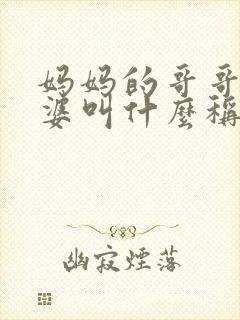 妈妈的哥哥
婆叫什麼稱
幽寂煙落